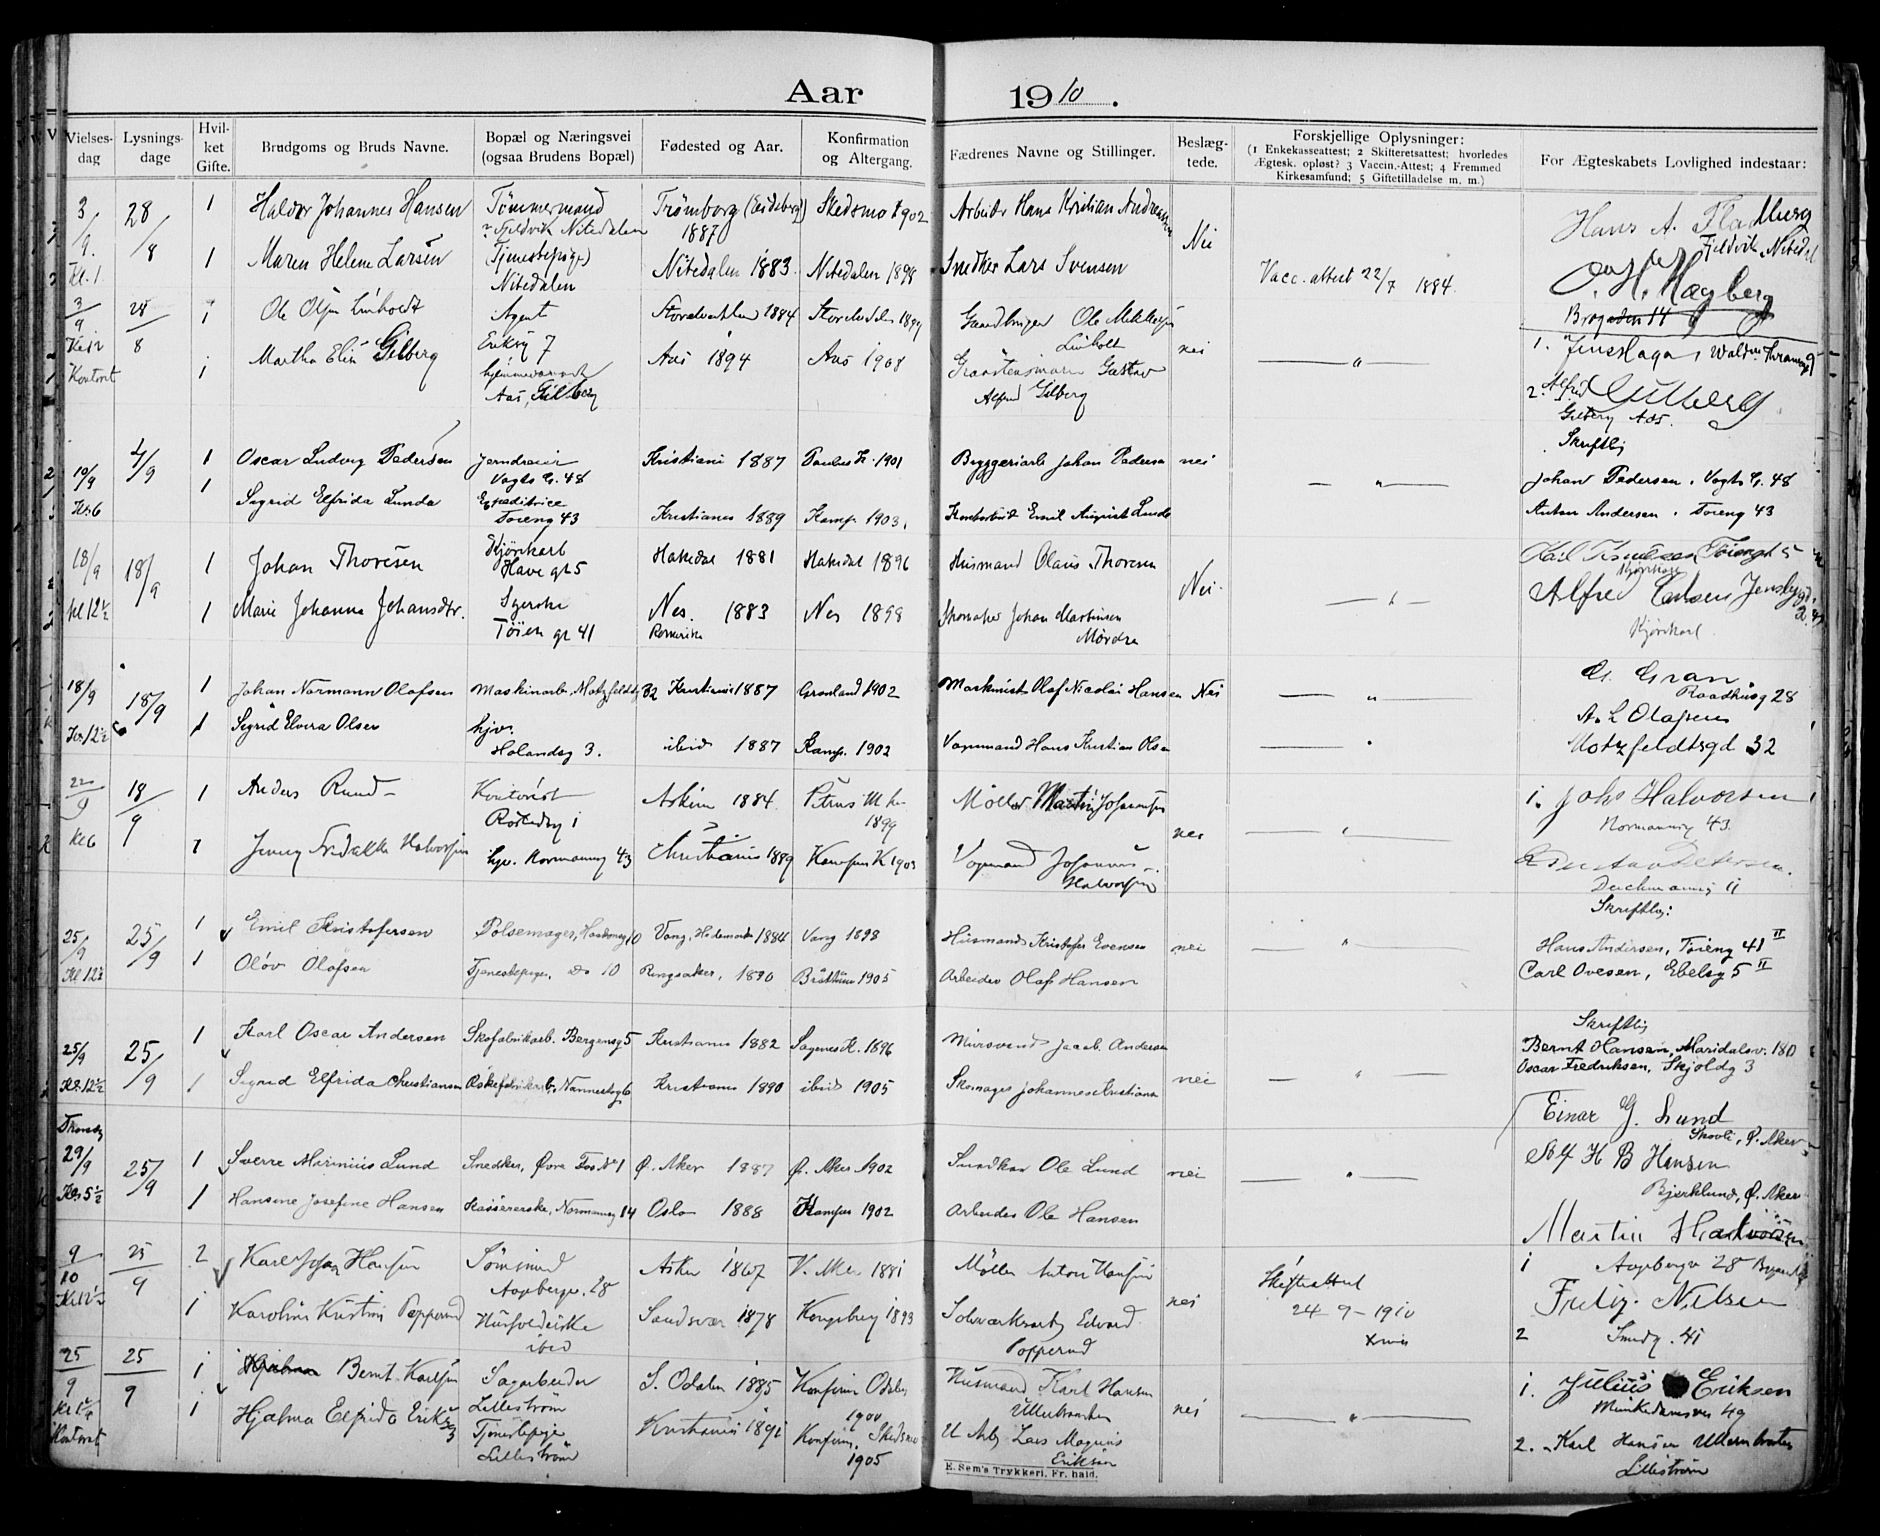 Aar 1910.
Vielses-dag
Lysnings-dage
Hvil-ket Gifte.
Brudgoms og Bruds Navne.
Bopæl og Næringsvei (ogsaa Brudens Bopæl)
Fødested og Aar.
Konfirmation og Altergang.
Fædrenes Navne og Stillinger.
Beslæg-tede.
Forskjellige Oplysninger:
(1 Enkekasseattest; 2 Skifteretsattest; hvorledes
Ægtesk. opløst? 3 Vaccin.-Attest; 4 Fremmed
Kirkesamfund; 5 Giftetilladelse m. m.)
For Ægteskabets Lovlighed indestaar:
3/9 28/8 1 Haldor Johannes Hansen Tømmermand Trømborg (Eidsberg) 1887 Skedsmo 1902 Arbeider Hans Kristian Andreassen Nei Hans A. Fladberg
Fjeldvik Nitedalen
Kl. 1 1 Maren Helene Larsen Tjenestepige Nitedalen Nitedalen 1883 Nitedalen 1898 Snedker Lars Svensen Vacc. attest 22/7 1884. O. H. Hagberg
3/9 28/8 1 Ole Linholdt Agent 1884 Gaardbruger Ole
Kontoret 1 Martha Elin Gilberg Aas, Gilberg Aas 1894 Aas 1908 Gustav Alfred Gilberg nei
2. Alfred Gilberg
Gilberg Aas.
Skriftlig
10/9 4/9 1 Oscar Ludvig Pedersen Jerndreier Vogts G. 48 Kristiania 1887 Paulus K. 1901 Bryggeriarb. Johan Pedersen nei Johan Pedersen, Vogts G. 48
Kl. 6 1 Sigrid Elfrida Lunde Expeditrice Tøieng 43 Kristiania 1889 Kamp. 1903. Kontorbud Emil August Lunde Anton Andersen, Tøieng 43
18/9 18/9 1 Johan Thoresen Kjørekarl Havegt 5 Hakedal 1881 Hakedal 1896 Husmand Olaus Thoresen Nei. Tøiengt 5
Kl 12½ 1 Marie Johanna Johansdtr. Syerske Tøien gt 41 Nes. Romerike 1883 Nes 1898 Skomaker Johan Martinsen Mørdre Alfred Carlsen
Kjørekarl
18/9 18/9 1 Johan Normann Olafsen Maskinarb. Motzfeldtsg 32 Kristiania 1887 Grønland 1902 Maskinist Olaf Nicolai Hansen Nei G. Gran
Raadhusg 28
Kl. 12½ 1 Sigrid Elvera Olsen hjv. Holandsg 3. ibid 1887 Kamp. 1902 Vognmand Hans Kristian Olsen A. L. Olafsen
Motzfeldtsgd 32
22/9 18/9 1 Anders Ruud Kontorist Askim 1884 Petrus M. k. 1899 Møller Martin Johansen nei 1. Johs Halvorsen
Normannsg 43.
Kl 6 1 Jenny Fredrikke Halvorsen hjv. Normannsg 43 Christiania 1889 Kampen K 1903 Vognmand Johannes Halvorsen
Deichmannsg 11
Skriftlig:
25/9 25/9 1 Emil Kristofersen Pølsemager, 10 Vang, Hedemarken 1884 Vang 1898 Husmand Kristofer Evensen nei Hans Andersen, Tøieng 41 II
Kl 12½ 1 Oløv Olafsen Tjenestepige, do 10 Ringsaker, 1890 Brøttum 1905 Arbeider Olaf Hansen Carl Ovesen, Ebelsg 5 II
Skriftlig
25/9 25/9 1 Karl Oscar Andersen Skofabrikarb. Bergensg 5 Kristiania 1882 Sagenes K. 1896 Mursvend Jacob Andersen Bernt Hansen, Maridalsv. 180
Kl. 12½ 1 Sigrid Elfrida Christiansen Æskefabrikarb. Nannestsg 6 Kristiania 1890 ibid 1905 Skomager Johannes Kristiansen nei Oscar Fredriksen, Skjoldg 3
29/9 25/9 1 Sverre Marinius Lund Snedker, Øvre Foss No 1 Ø. Aker 1887 Ø. Aker 1902 Snedker Ole Lund nei Einar G. Lund
Ø. Aker
Kl. 5½ 1 Hansine Josefine Hansen Kassererske, Normannsg 14 Oslo 1888 Kampen 1902 Arbeider Ole Hansen H B Hansen
Bjerklund, Ø. Aker
9/10 25/9 2 Karl Johan Hansen Sømsmed Aapbergv. 28 Asker 1867 V. Aker 1881 Møller Anton Hansen nei Skifteattest 24-9-1910 Martin Halvorsen
1 Aapbergv 28
Kl 12½ 1 Karoline Kristine Popperud Husholderske ibid Sandsvær 1878 Kongsberg 1893 Sølvværksarb. Edvard Popperud Fredrik Nilsen
2 Smedg. 41
25/9 25/9 1 Bernt Karlsen Sagarbeider Lillestrøm S. Odalen 1885 Konfirm. Odalen 1900 Husmand Karl Hansen nei 1. Julius Eriksen
Munkedamsvei 49
Kontoret 1 Hjalma Elfrida Eriksen Tjenestepige Lillestrøm Kristiania 1891 Konfirm. Skedsmo 1905 Lars Magnus Eriksen 2. Karl Hansen
Lillestrøm
E. Sem's Trykkeri, Fr.hald.